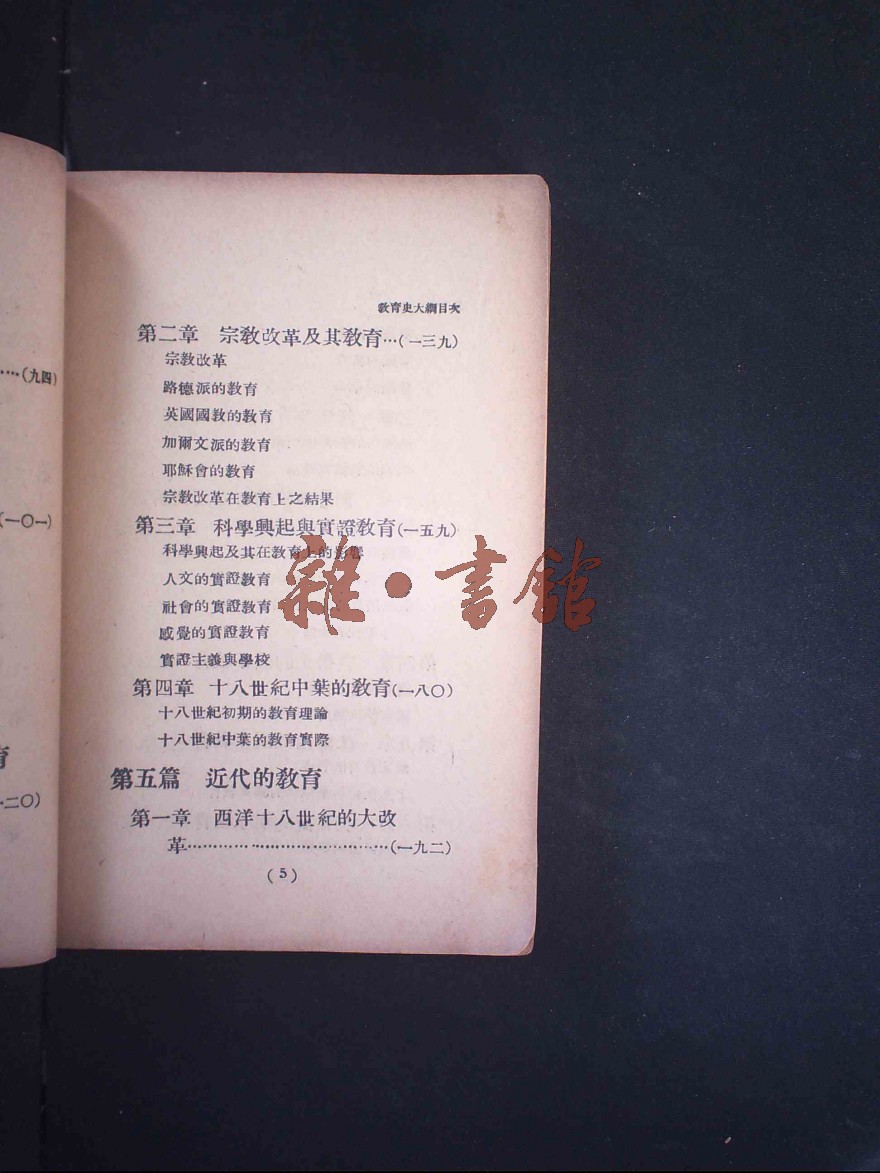 教育史大綱目次
第二章 宗教改革及其教育…(一三九)
宗教改革
路德派的教育
英國國教的教育
加爾文派的教育
耶穌會的教育
宗教改革在教育上之結果
第三章 科學興起與實證教育(一五九)
科學興起及其在教育上的影響
人文的實證教育
社會的實證教育
感覺的實證教育
實證主義與學校
第四章 十八世紀中葉的教育(一八〇)
十八世紀初期的教育理論
十八世紀中葉的教育實際
第五篇 近代的教育
第一章 西洋十八世紀的大改
革……………………………(一九二)
(5)
……(九四)
(一〇一)
育
一二〇)
雜·書館